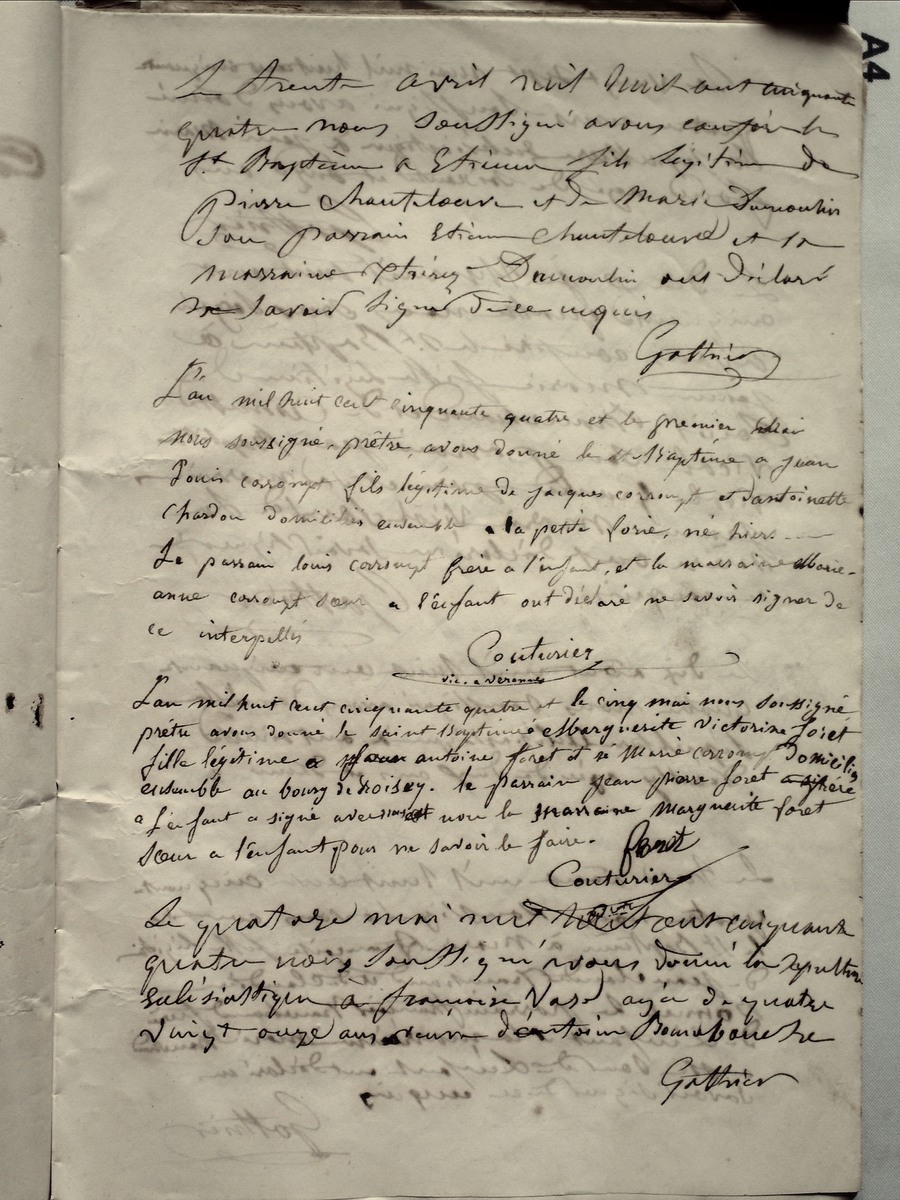 A4
Le trente avril mil huit cent cinquante
quatre nous soussigné avons conféré le
St Baptême a Etienne fils légitime de
Pierre Chanteloeuve et de Marie Dumoulin
son parrain Etienne Chanteloeuve et sa
marraine Dumoulin ont déclaré
ne savoir signé de ce requis
Gathier
L'an mil huit cent cinquante quatre et le premier Mai
nous soussigné, prêtre, avons donné le st Baptême a jean
Louis corrompt fils légitime de jacques corrompt et d'antoinette
Chardon domiciliés ensemble a la petite forie, né hier
Le parrain louis corrompt frère a l'enfant, et la marraine Marie-
anne corrompt soeur a l'enfant ont déclaré ne savoir signer de
ce interpellés
Couturier
vic. a
L'an mil huit cent cinquante quatre et le cinq mai nous soussigné
prêtre avons donné le saint Baptême a Marguerite Victorine foret
fille légitime a antoine foret et de Marie corrompt Domiciliés
ensemble au bourg de . le parrain jean pierre foret frère
a l'enfant a signé avec non la marraine Marguerite foret
soeur a l'enfant pour ne savoir le faire. foret
Couturier
Le quatorze mai mil huit cent cinquante
quatre nous soussigné avons donné la sepulture
eclésiastique à francoise Vase agée de quatre
vingt onze ans veuve d'antoine
Gathier